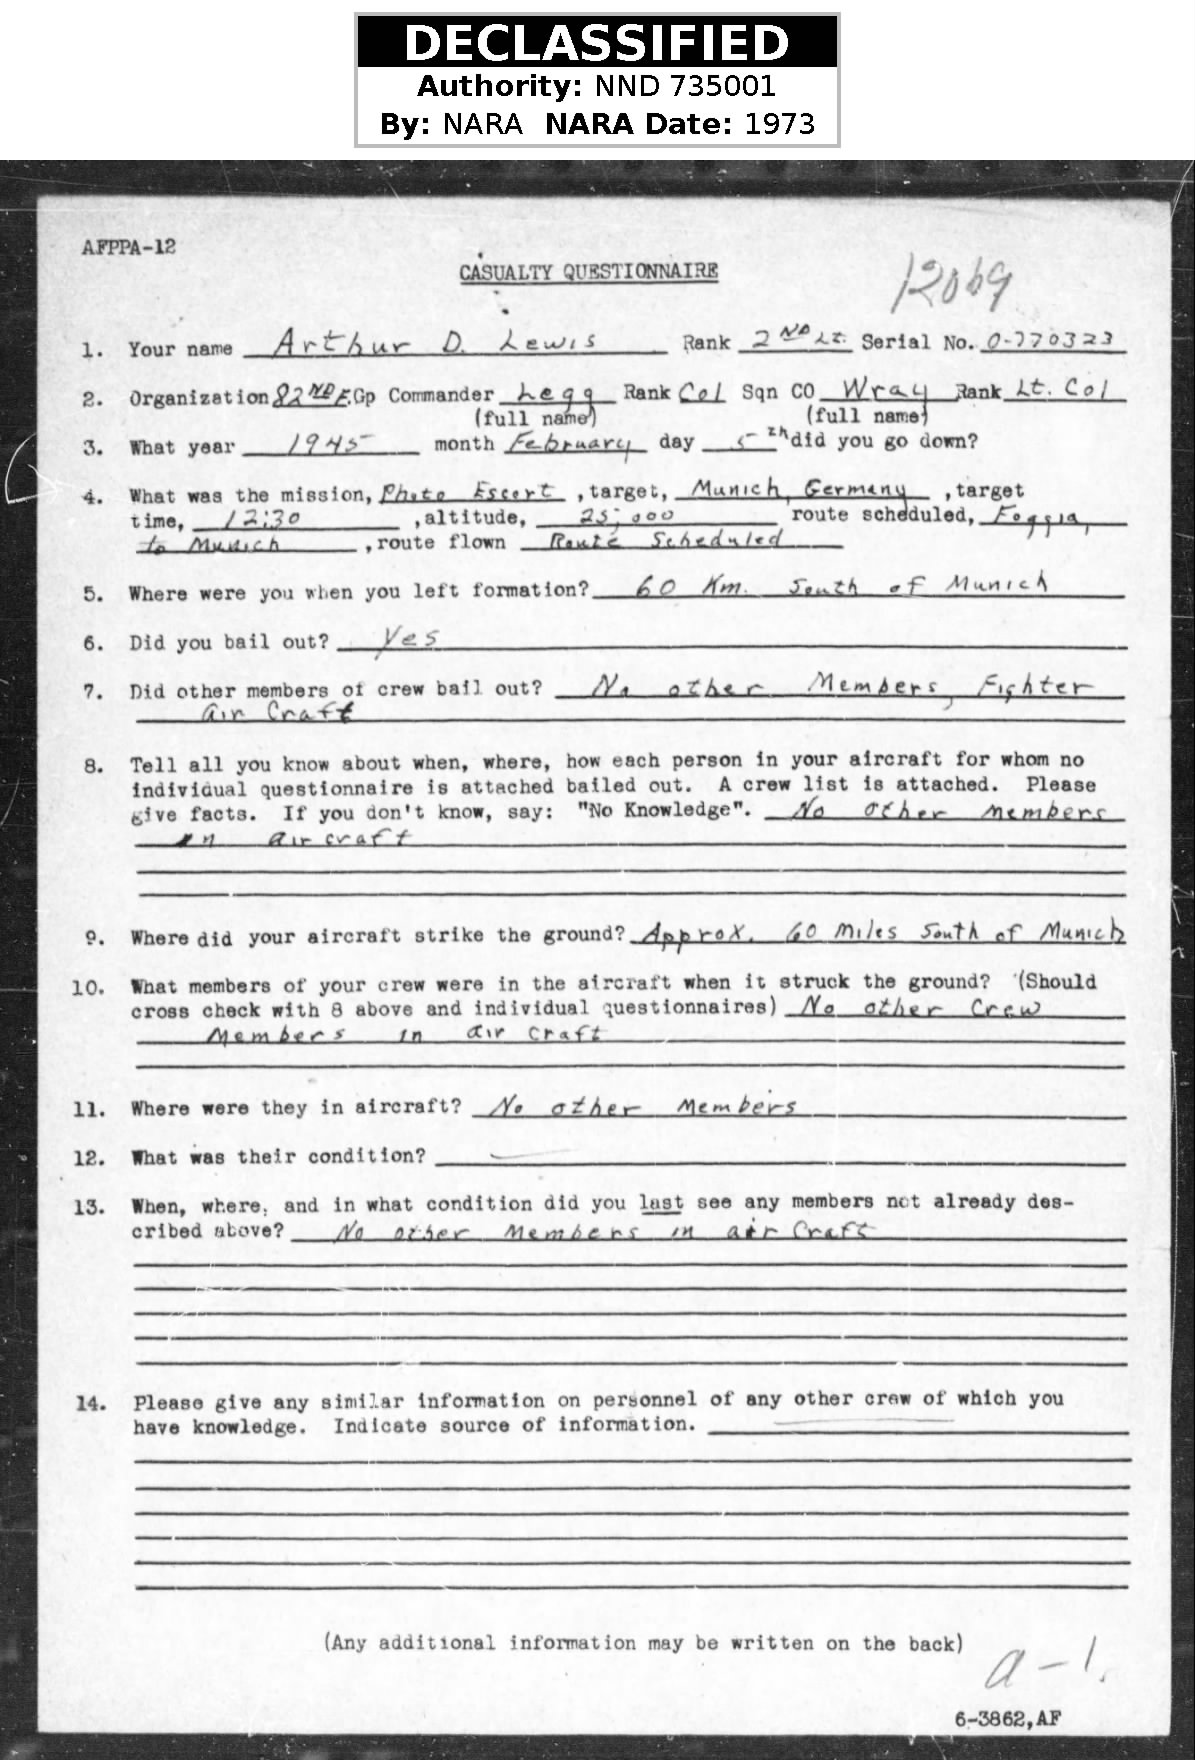 DECLASSIFIED
Authority: NND 735001
By: NARA NARA Date: 1973
AFPPA-12
CASUALTY QUESTIONNAIRE
12069
1. Your name Arthur D. Lewis Rank 2ND Lt. Serial No. 0-770323
2. Organization 82ND F. Gp Commander Legg Rank Col Sqn CO Wray Rank Lt. Col
(full name) (full name)
3. What year 1945 month February day 5th did you go down?
4. What was the mission, Photo Escort , target, Munich, Germany , target
time, 12:30 , altitude, 25,000 route scheduled, Foggia,
to Munich , route flown Route Scheduled
5. Where were you when you left formation? 60 Km. South of Munich
6. Did you bail out? Yes
7. Did other members of crew bail out? No other Members, Fighter
air Craft
8. Tell all you know about when, where, how each person in your aircraft for whom no
individual questionnaire is attached bailed out. A crew list is attached. Please
give facts. If you don't know, say: "No Knowledge". No other members
in aircraft
9. Where did your aircraft strike the ground? Approx. 60 Miles South of Munich
10. What members of your crew were in the aircraft when it struck the ground? (Should
cross check with 8 above and individual questionnaires) No other Crew
Members in air craft
11. Where were they in aircraft? No other Members
12. What was their condition?
13. When, where, and in what condition did you last see any members not already des-
cribed above? No other Members in air Craft
14. Please give any similar information on personnel of any other crew of which you
have knowledge. Indicate source of information.
(Any additional information may be written on the back)
a-1.
6-3862,AF